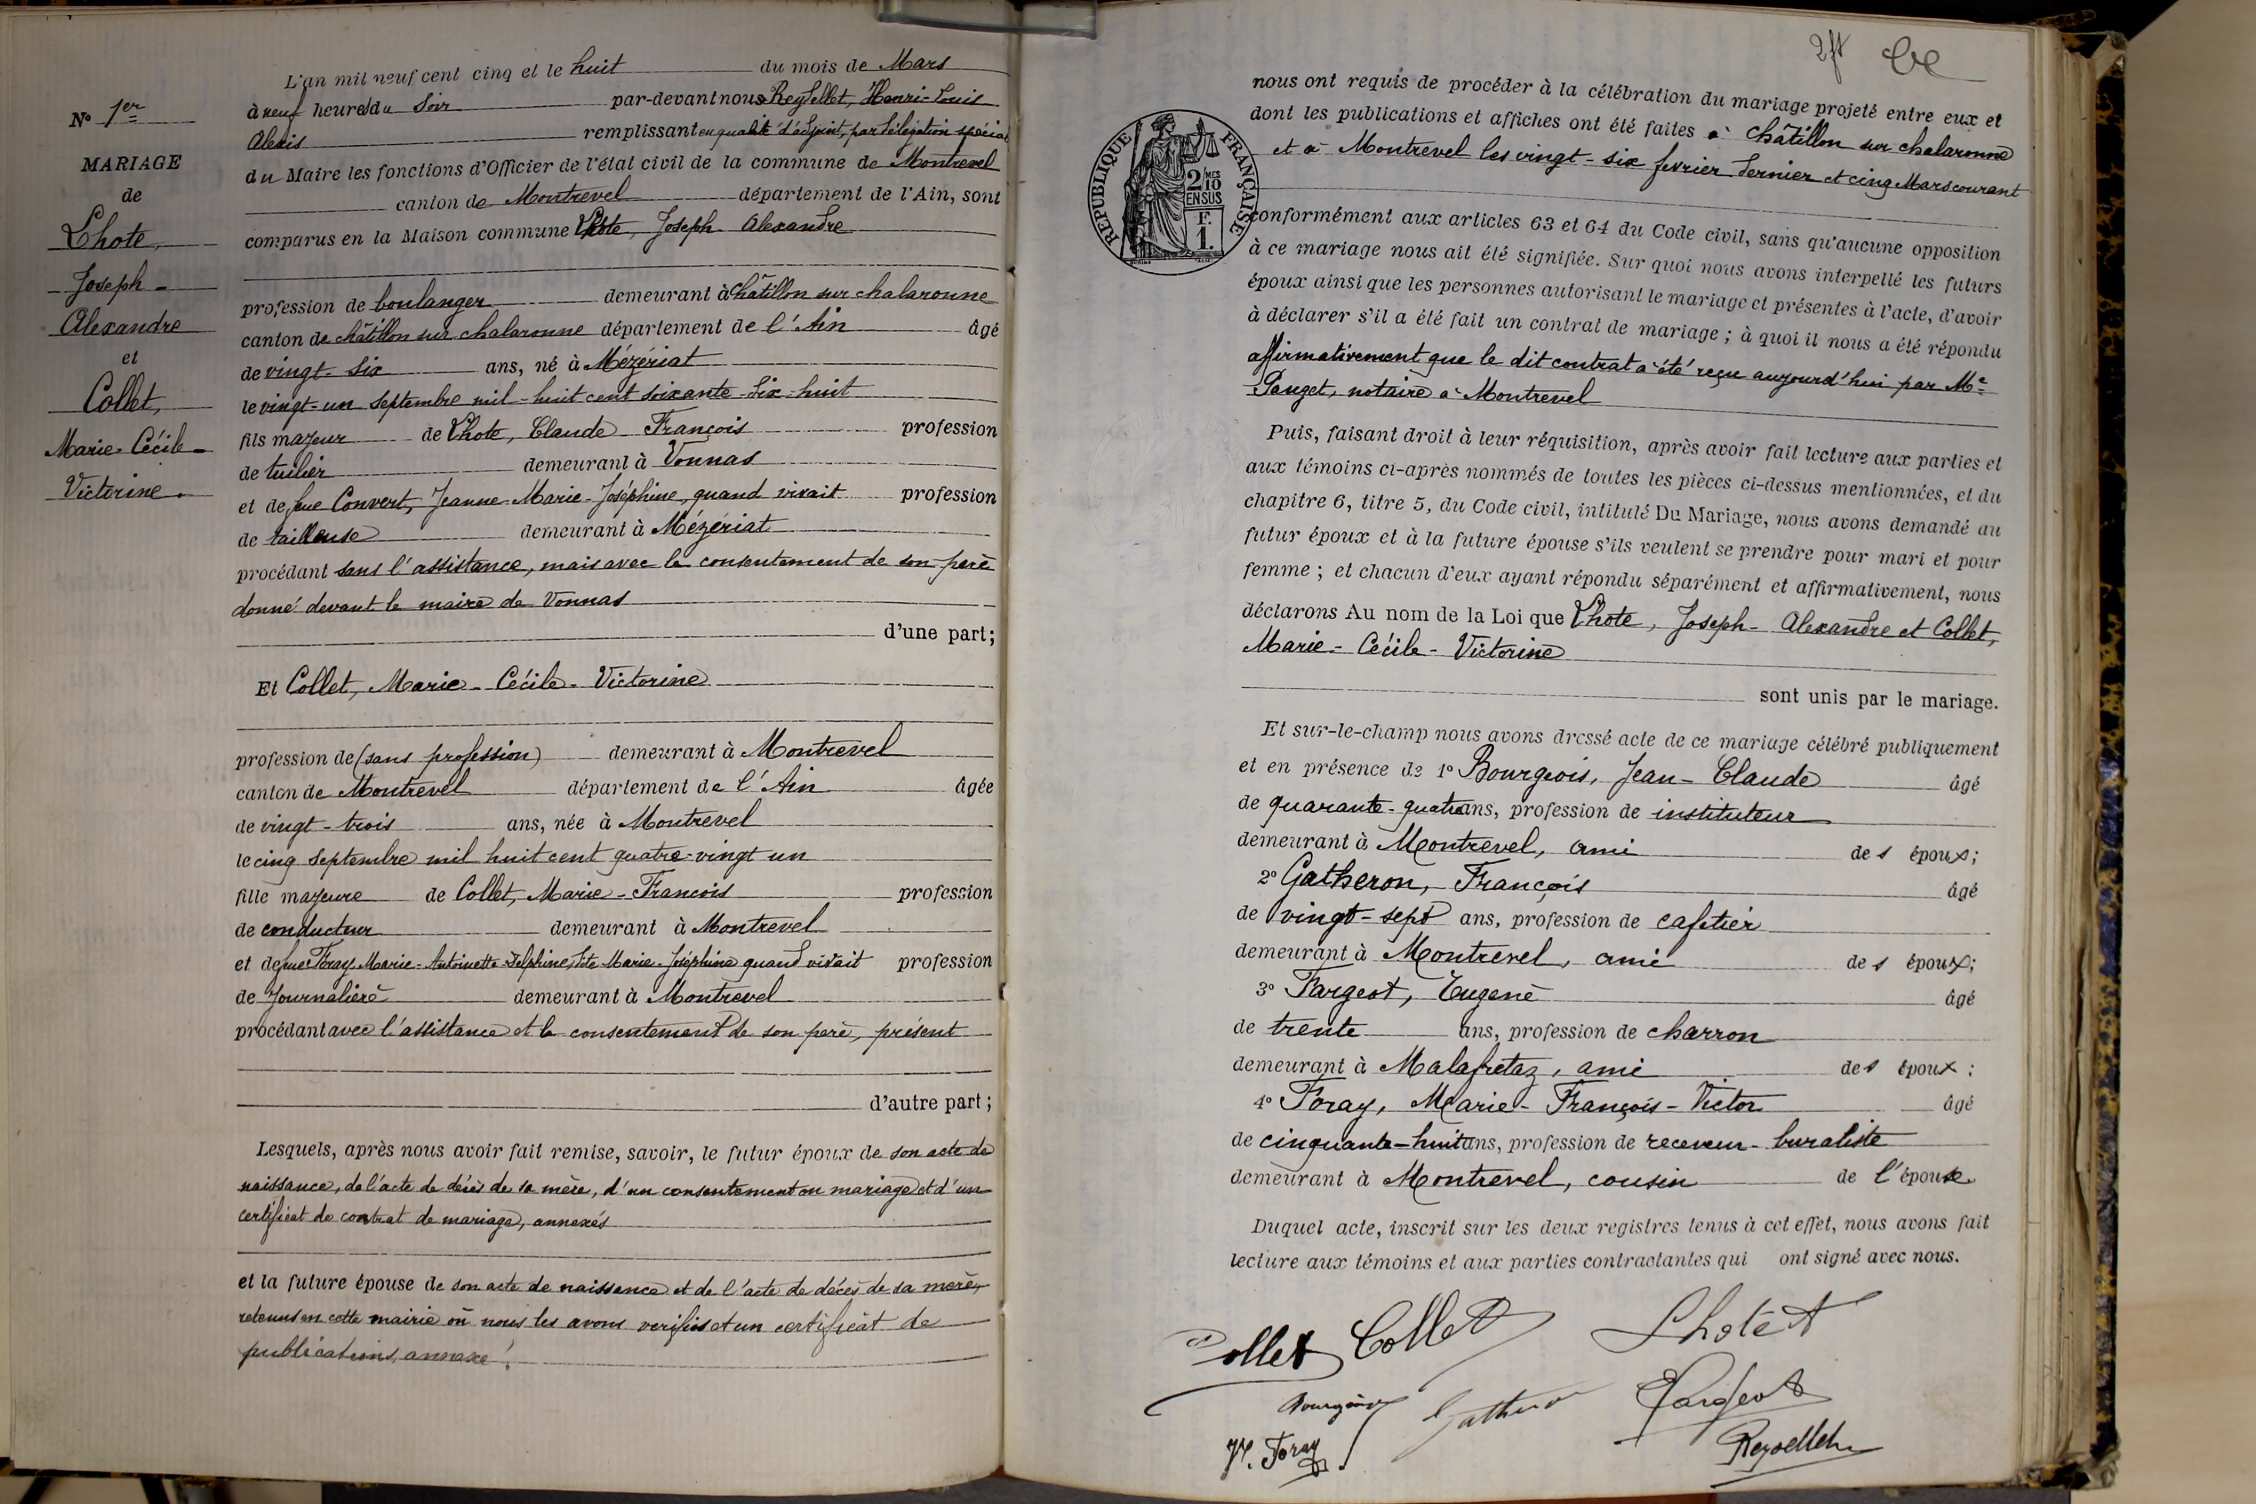 N° 1er
MARIAGE
de
Lhote,
Joseph-
Alexandre
et
Collet,
Marie-Cécile-
Victorine.
L'an mil neuf cent cinq et le huit du mois de Mars
à neuf heures du soir par-devant nous Reysellet, Henri-Louis
Alexis remplissant en qualité d'adjoint, par délégation spéciale
du Maire les fonctions d'Officier de l'état civil de la commune de Montrevel
canton de Montrevel département de l'Ain, sont
comparus en la Maison commune Lhote, Joseph-Alexandre
profession de boulanger demeurant à Châtillon sur chalaronne
canton de châtillon sur chalaronne département de l'Ain âgé
de vingt-six ans, né à Mézériat
le vingt-un septembre mil-huit cent soixante-dix-huit
fils majeur de Lhote, Claude François profession
de tuilier demeurant à Vonnas
et de feue Convert, Jeanne-Marie-Joséphine, quand vivait profession
de tailleuse demeurant à Mézériat
procédant sans l'assistance, mais avec le consentement de son père
donné devant le maire de Vonnas
d'une part;
Et Collet, Marie-Cécile-Victorine
profession de (sans profession) demeurant à Montrevel
canton de Montrevel département de l'Ain âgée
de vingt-trois ans, née à Montrevel
le cinq septembre mil huit cent quatre-vingt un
fille majeure de Collet, Marie-François profession
de conducteur demeurant à Montrevel
et de feue Foray Marie-Antoinette-Delphine, dite Marie-Joséphine quand vivait profession
de Journalière demeurant à Montrevel
procédant avec l'assistance et le consentement de son père, présent
d'autre part;
Lesquels, après nous avoir fait remise, savoir, le futur époux de son acte de
naissance, de l'acte de décès de sa mère, d'un consentement au mariage et d'un
certificat de contrat de mariage, annexés
et la future épouse de son acte de naissance et de l'acte de décès de sa mère,
retenus en cette mairie où nous les avons verifiés et un certificat de
publications, annexé.
nous ont requis de procéder à la célébration du mariage projeté entre eux et
dont les publications et affiches ont été faites à châtillon sur chalaronne
et à Montrevel les vingt-six fevrier dernier et cinq Mars courant
RÉPUBLIQUE FRANÇAISE
2MES
10
EN SUS
F.
1.
conformément aux articles 63 et 64 du Code civil, sans qu'aucune opposition
à ce mariage nous ait été signifiée. Sur quoi nous avons interpellé les futurs
époux ainsi que les personnes autorisant le mariage et présentes à l'acte, d'avoir
à déclarer s'il a été fait un contrat de mariage; à quoi il nous a été répondu
affirmativement que le dit contrat a été reçu aujourd'hui par Me
Panget, notaire à Montrevel
Puis, faisant droit à leur réquisition, après avoir fait lecture aux parties et
aux témoins ci-après nommés de toutes les pièces ci-dessus mentionnées, et du
chapitre 6, titre 5, du Code civil, intitulé Du Mariage, nous avons demandé au
futur époux et à la future épouse s'ils veulent se prendre pour mari et pour
femme; et chacun d'eux ayant répondu séparément et affirmativement, nous
déclarons Au nom de la Loi que Lhote, Joseph-Alexandre et Collet,
Marie-Cécile-Victorine
sont unis par le mariage.
Et sur-le-champ nous avons dressé acte de ce mariage célébré publiquement
et en présence de 1° Bourgeois, Jean-Claude âgé
de quarante-quatre ans, profession de instituteur
demeurant à Montrevel, ami des époux;
2° Gatheron, François âgé
de vingt-sept ans, profession de cafetier
demeurant à Montrevel, ami des époux;
3° Fargeot, Eugène âgé
de trente ans, profession de charron
demeurant à Malafretaz, ami des époux;
4° Foray, Marie-François-Victor âgé
de cinquante-huit ans, profession de receveur-buraliste
demeurant à Montrevel, cousin de l'épouse.
Duquel acte, inscrit sur les deux registres tenus à cet effet, nous avons fait
lecture aux témoins et aux parties contractantes qui ont signé avec nous.
Collet Collet Lhotet
Bourgeois Gatheron Fargeot
V. Foray Reysellet